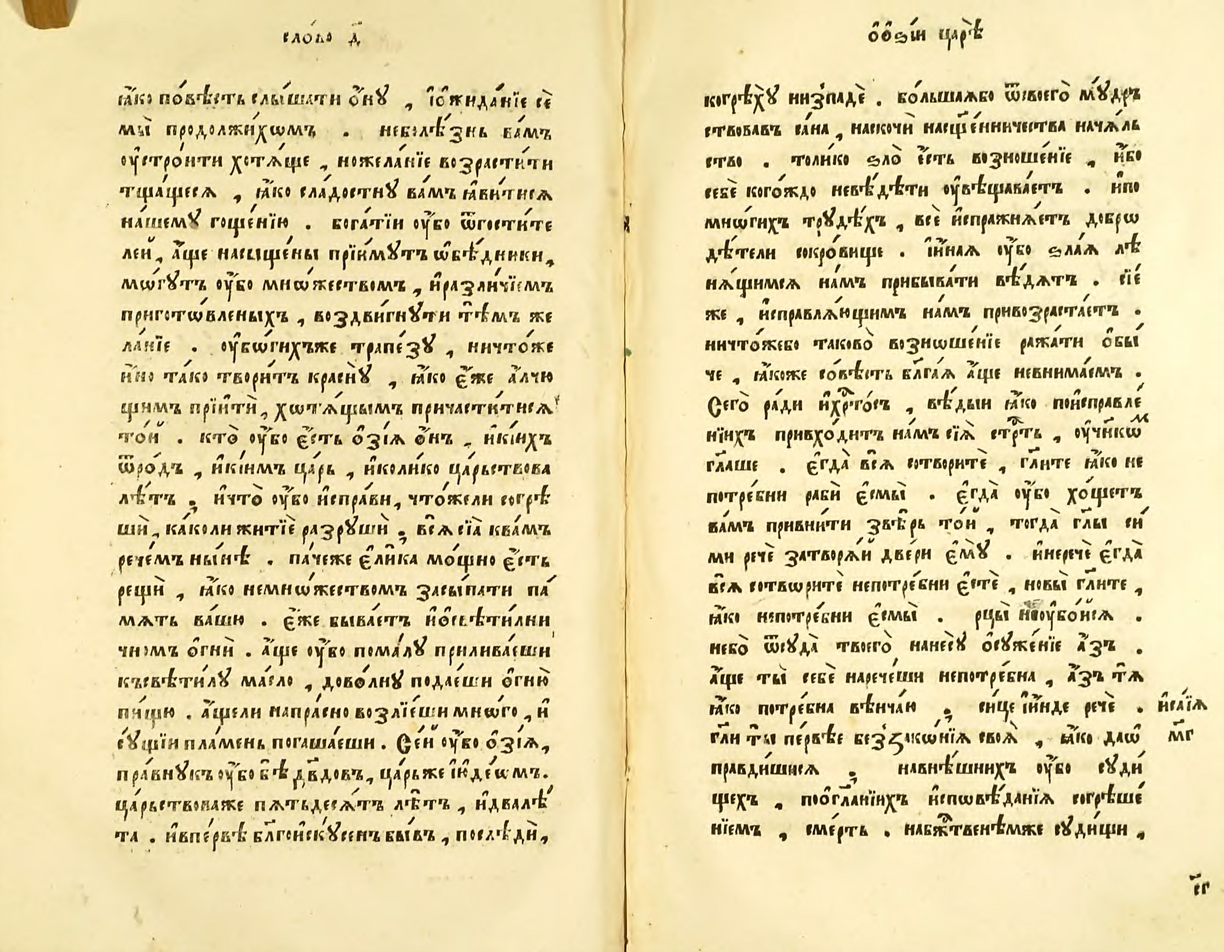 сло́во д҃
ꙗ҆́ко по́вѣсть слы́шати о҆́нꙋ , і҆ѻ҆жида́нїе се̏
мы̀ продолжи́хѡмъ . неболѣ́знь ва́мъ
оу҆стро́ити хотѧ́ще , ножела́нїе возрасти́ти
тща́щесѧ , ꙗ҆́ко сла́достнꙋ ва́мъ ꙗ҆ви́тисѧ
на́шемꙋ гоще́нїю . бога́тїи оу҆́бо ѿгости́те
лей , а҆́ще насыще́ны прїи́мꙋтъ ѡ҆бѣ́дники ,
мо́гꙋтъ оу҆́бо мно́жествомъ , и҆разли́чїемъ
пригото́вленыхъ , воздви́гнꙋти тѣ̑мъ же
ла́нїе . оу҆бо́гихъже трапе́зꙋ , ничто́же
и҆́но та́ко твори́тъ кра́снꙋ , ꙗ҆́ко є҆́же а҆́лчю
щимъ прїити̏ , хотѧ́щымъ причасти́тисѧ
то́й . кто̀ оу҆́бо є҆́сть о҆зі́ѧ о҆́нъ , и҆кі́ихъ
ѿро́дъ , и҆кі́имъ ца́рь , и҆коли́ко ца́рьствова
лѣ́тъ ; и҆что̀ оу҆́бо и҆спра́ви , что́жели согрѣ
шѝ , ка́коли житїѐ разрꙋшѝ ; всѧ̀ сїѧ̀ ква́мъ
рече́мъ ны́нѣ . па́чеже є҆ли́ка мо́щно є҆́сть
рещѝ , ꙗ҆́ко немно́жествомъ засы́пати па́
мѧть ва́шю . є҆́же быва́етъ и҆ѻ҆свѣти́лни
чномъ о҆гнѝ . а҆́ще оу҆́бо пома́лꙋ прилива́еши
късвѣти́лꙋ ма́сло , дово́лнꙋ подае́ши о҆гню̀
пи́щю . а҆́щели напра́сно возлїе́ши мно́го , и҆
сꙋ́щїи пла́мень погаша́еши . Се́й оу҆́бо о҆зі́ѧ ,
пра́внꙋкъ оу҆́бо бѣ̀ дв҃довъ , ца́рьже і҆ꙋде́ѡмъ .
ца́рьствоваже пѧтьдесѧ́тъ лѣ́тъ , и҆два̀лѣ́
та . и҆впе́рвѣ бл҃гоискꙋ́сенъ бы́въ , послѣдѝ ,
ѻ҆ѻ҆зі́и царѣ̀
когрѣхꙋ̀ низпадѐ . бо́льшаѧбо ѿсвоегѐ мꙋ́дръ
ствовавъ са́на , наскочѝ насщ҃е́нничества нача́ль
ство . толи́ко ѕло̀ є҆́сть возноше́нїе , и҆́бо
себѐ кого́ждо невѣ́дѣти оу҆вѣщава́етъ . и҆по
мно́гихъ трꙋ́дѣхъ , всѐ и҆спражнѧ́етъ добро
дѣ́тели сокро́вище . и҆и҆на́ѧ оу҆́бо ѕла́ѧ лѣ
нѧ́щимсѧ на́мъ прибыва́ти вѣ́дѧтъ . сїе́
же , и҆справлѧ́ющимъ на́мъ привозраста́етъ .
ничто́жебо таково̀ возноше́нїе ража́ти о҆бы́
че , ꙗ҆́коже со́вѣсть бл҃га́ѧ а҆́ще невнима́емъ .
Сего̀ ра́ди и҆хр҃то́съ , вѣ́дыи ꙗ҆́ко поисправле́
нїихъ привхо́дитъ на́мъ сїѧ̀ стр҃ть , оу҆чн҃кѡм
гл҃аше . є҆гда̀ всѧ̀ сотвори́те , гл҃ите ꙗ҆́ко не
потре́бни раби̏ є҆смы̀ . є҆гда̀ оу҆́бо хо́щетъ
ва́мъ привни́ти звѣ́рь то́й , тогда̀ гл҃ы си́
ми речѐ затворѧ́й две́ри є҆мꙋ̀ . и҆неречѐ є҆гда̀
всѧ̀ сотвори́те непотре́бни є҆стѐ , но́вы гл҃ите ,
ꙗ҆́ко непотре́бни є҆смы̀ . рцы̀ неоу҆бо́йсѧ .
небо̀ ѿсꙋда̀ твоего̀ нанесꙋ̀ ѻ҆сꙋже́нїе а҆́зъ .
а҆́ще ты̀ себѐ нарече́ши непотре́бна , а҆́зъ тѧ̀
ꙗ҆́ко потре́бна вѣнча́ю ; си́це и҆и҆́нде речѐ .
гл҃и ты̀ пе́рвѣе беззако́нїѧ своѧ̀ , ꙗ҆́ко даѡ҆
правди́шисѧ ; навнѣ́шнихъ оу҆́бо сꙋди́
щехъ , поѻ҆гла́нїихъ и҆сповѣ́данїѧ согрѣше́
нїемъ , сме́рть . набж҃ственѣмже сꙋди́щи ,
и҆са́їѧ
мг҃
сг҃